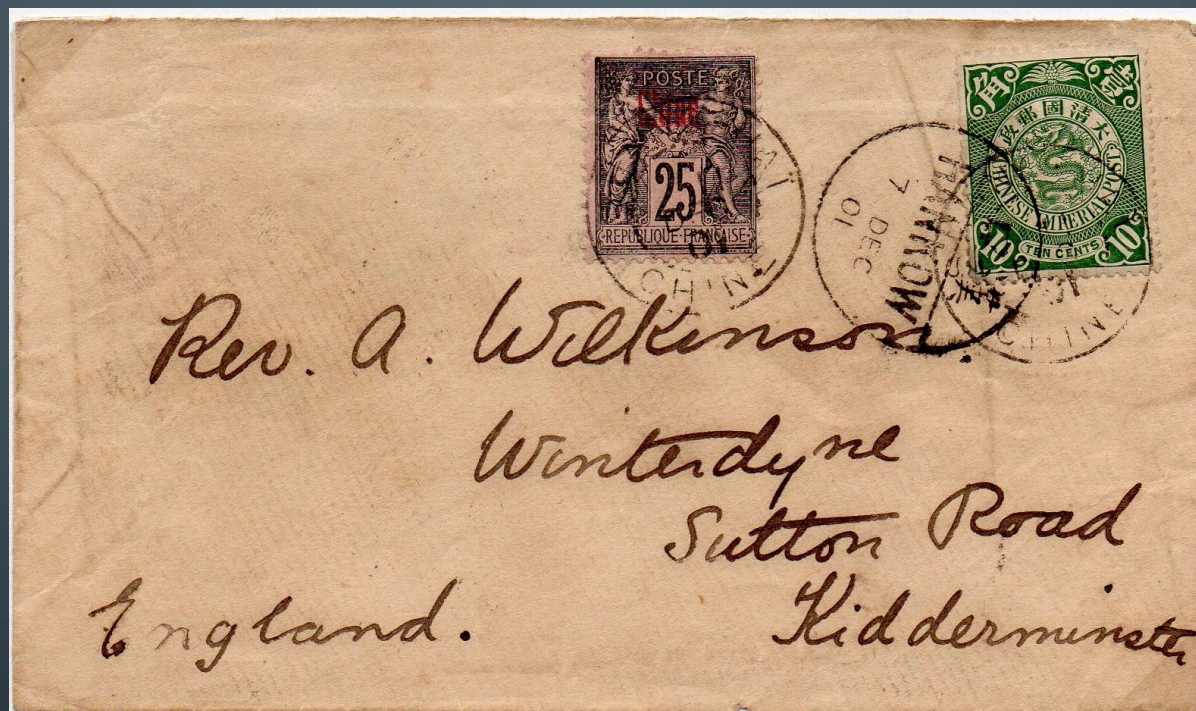 POSTE
Chine
25
REPUBLIQUE FRANÇAISE
CHINE
HANKOW
7 DEC 01
角 貳
政郵國清大
CHINESE IMPERIAL POST
10 TEN CENTS 10
CHINE
Rev. A. Wilkinson.
Winterdyne
Sutton Road
Kidderminster
England.